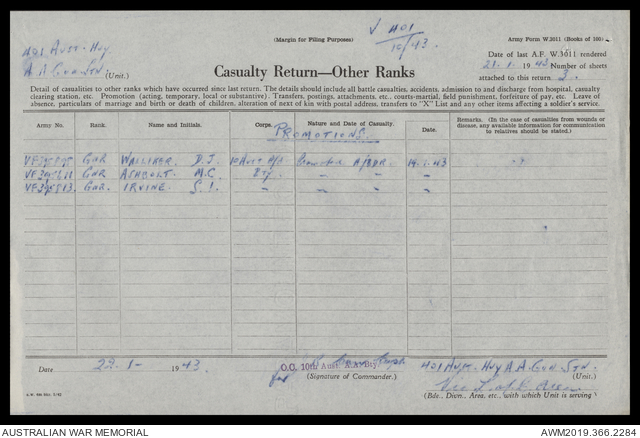 (Margin for Filing Purposes)
√ 401
/43.
Army Form W.3011 (Books of 100)
401 Aust. Hvy
A A Gun Stn. (Unit.)
Date of last A.F. W.3011 rendered
21. 1. 1943 Number of sheets
attached to this return 3.
Casualty Return—Other Ranks
Detail of casualties to other ranks which have occurred since last return. The details should include all battle casualties, accidents, admission to and discharge from hospital, casualty
clearing station, etc. Promotion (acting, temporary, local or substantive). Transfers, postings, attachments, etc., courts-martial, field punishment, forfeiture of pay, etc. Leave of
absence, particulars of marriage and birth or death of children, alteration of next of kin with postal address, transfers to "X" List and any other items affecting a soldier's service.
Army No. Rank. Name and Initials. Corps. Nature and Date of Casualty. Date. Remarks. (In the case of casualties from wounds or disease, any available information for communication to relatives should be stated.)
PROMOTIONS.
GNR WALLIKER. D.J. Aust A/BDR. 43
GNR ASHBOLT. M.C. Bty. " "
GNR. IRVINE. S.I. " " "
Date 22. 1. 1943.
O.C. 10th Aust. A.A. Bty.
for (Signature of Commander.)
401 Aust. Hvy A.A. Gun Stn.
(Unit.)
Vic L of C Area
(Bde., Divn., Area, etc., with which Unit is serving)
AUSTRALIAN WAR MEMORIAL
AWM2019.366.2284